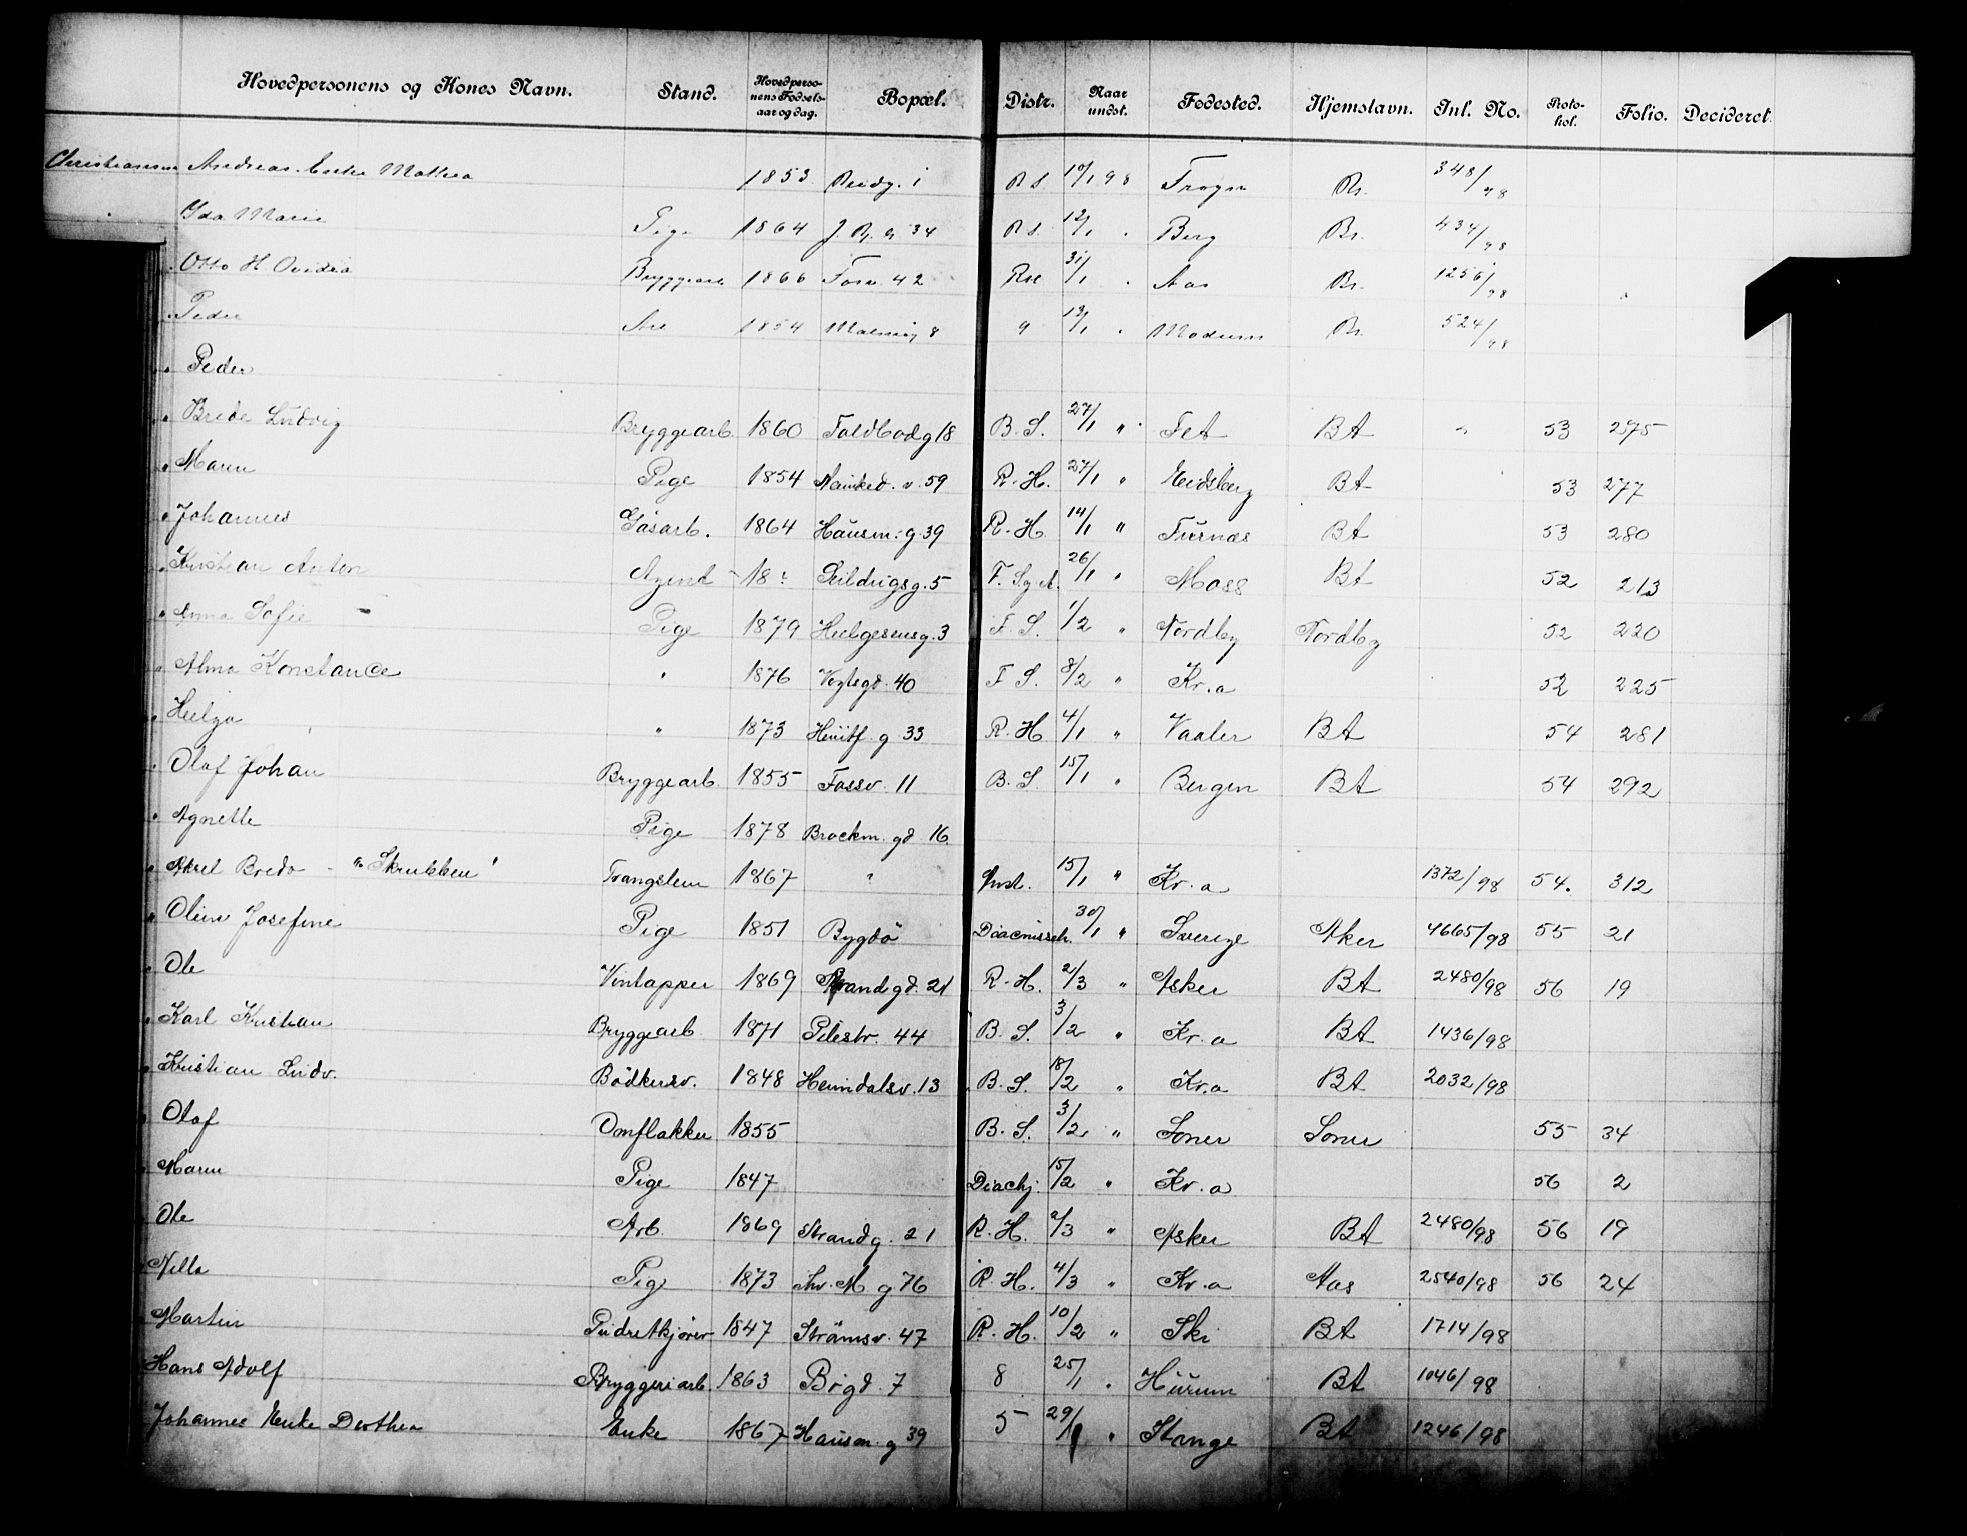 Hovedpersonens og Kones Navn. Stand. Hovedpersonens Fødselsaar og dag. Bopæl. Distr. Naar undst. Fødested. Hjemstavn. Inl. No. Protokol. Folio. Decideret
Christiansen Andreas. Enke Mathea 1853 1 R S 10/1 98 Frogn Bt. 348/98
Ida Marie Pige 1864 34 R S. 12/1 . Berg Bt. 434/98
Otto H. Ovidia Bryggearb 1866 Fossv. 42 31/1 . Aas Bt. 1256/98
Peder Arb 1854 8 " 13/1 . Modum Bt. 524/98
" Peder
" Brede Ludvig Bryggearb. 1860 Toldbodg 18 B. S. 27/1 " Fet Bt " 53 275
" Maren Pige 1854 v. 59 R. H. 27/1 " Eidsberg Bt 53 277
" Johannes Gasarb. 1864 Hausm. g. 39 R. H 14/1 " Furnæs Bt 53 280
" Kristian Anton Agent 18 ? g. 5 F. 26/1 " Moss Bt 52 213
" Anna Sofie Pige 1879 Helgesensg. 3 F. S. 1/2 " Nordby Nordby 52 220
" Alma Konstance " 1876 Vogtsgd. 40 F S. 8/2 " Kr.a 52 225
" Helga " 1873 Henitf. g 33 R. H 4/1 " Vaaler Bt 54 281
" Olaf Johan Bryggearb. 1855 Fossv. 11 B. S. 15/1 " Bergen Bt 54 292
" Agnethe Pige 1878 Brockm. gd 16
" Axel Bredo - "Skrubben" Trangslem 1867 ? Inst. 15/1 " Kr. a 1372/98 54. 312
" Oline Josefine Pige 1851 Bygdö Diacnisseh. 30/1 " Sverige Aker 4665/98 55 21
" Ole Vintapper 1869 Strandgd. 21 R. H. 2/3 " Asker Bt 2480/98 56 19
" Karl Kristian Bryggearb. 1871 Pilestr. 44 B. S. 3/2 " Kr. a Bt 1436/98
" Kristian Ludv. Bödkersv. 1848 Heimdalsv. 13 B. S. 18/2 " Kr.a Bt 2032/98
" Olaf Omflakker 1855 B. S. 3/2 " Soner Soner 55 34
" Maren Pige 1847 Diachj. 15/2 " Kr. a 56 2
" Ole Arb. 1869 Strandg. 21 R. H. 2/3 " Asker Bt 2480/98 56 19
" Nilla Pige 1873 Thv. M. g 76 R. H. 4/3 " Kr. a Aas 2540/98 56 24
Martin Pudretkjører 1847 Strömsv. 47 R. H. 10/2 " Ski Bt 1714/98
Hans Adolf Bryggeriarb. 1863 Bogd. 7 8 25/1 " Hurum Bt 1046/98
Johannes Enke Dorthea Enke 1867 Hausm. g 39 5 29/1 " Stange Bt 1246/98